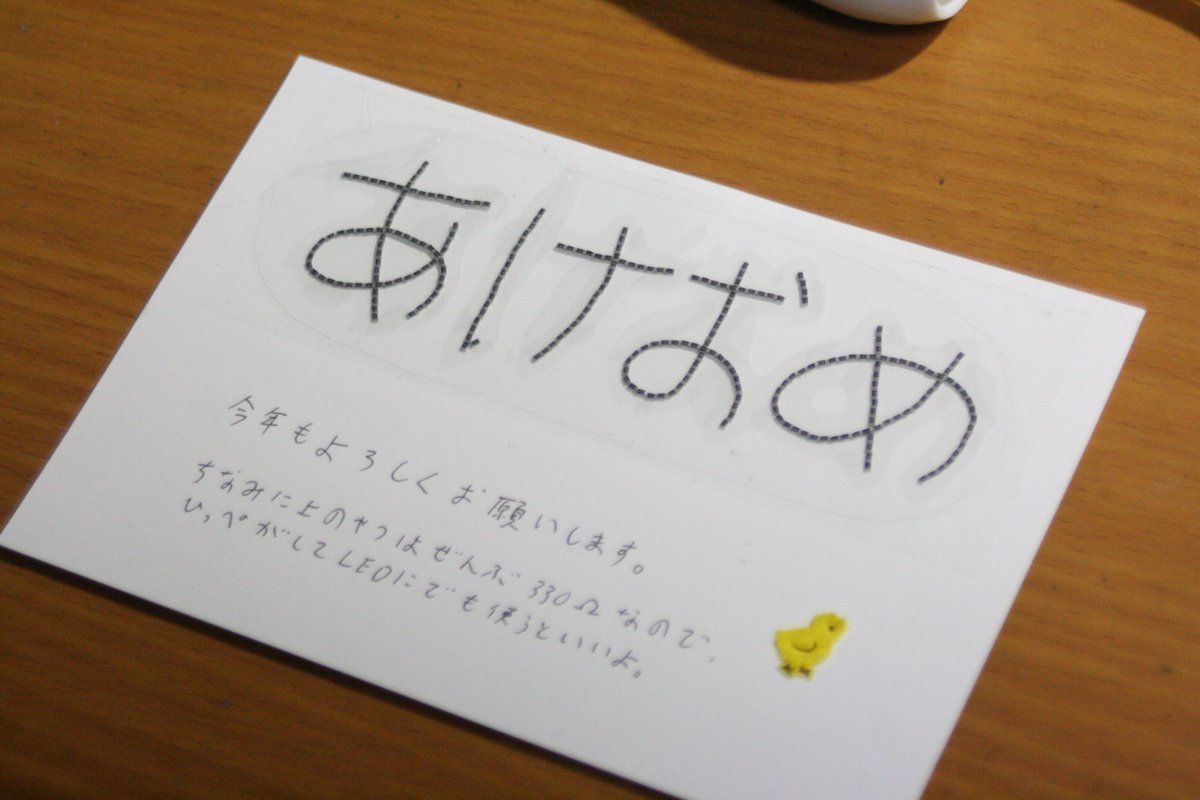 あけおめ
今年もよろしくお願いします。
ちなみに上のヤツはぜんぶ330Ωなので、
ひっぺがしてLEDにでも使うといいよ。